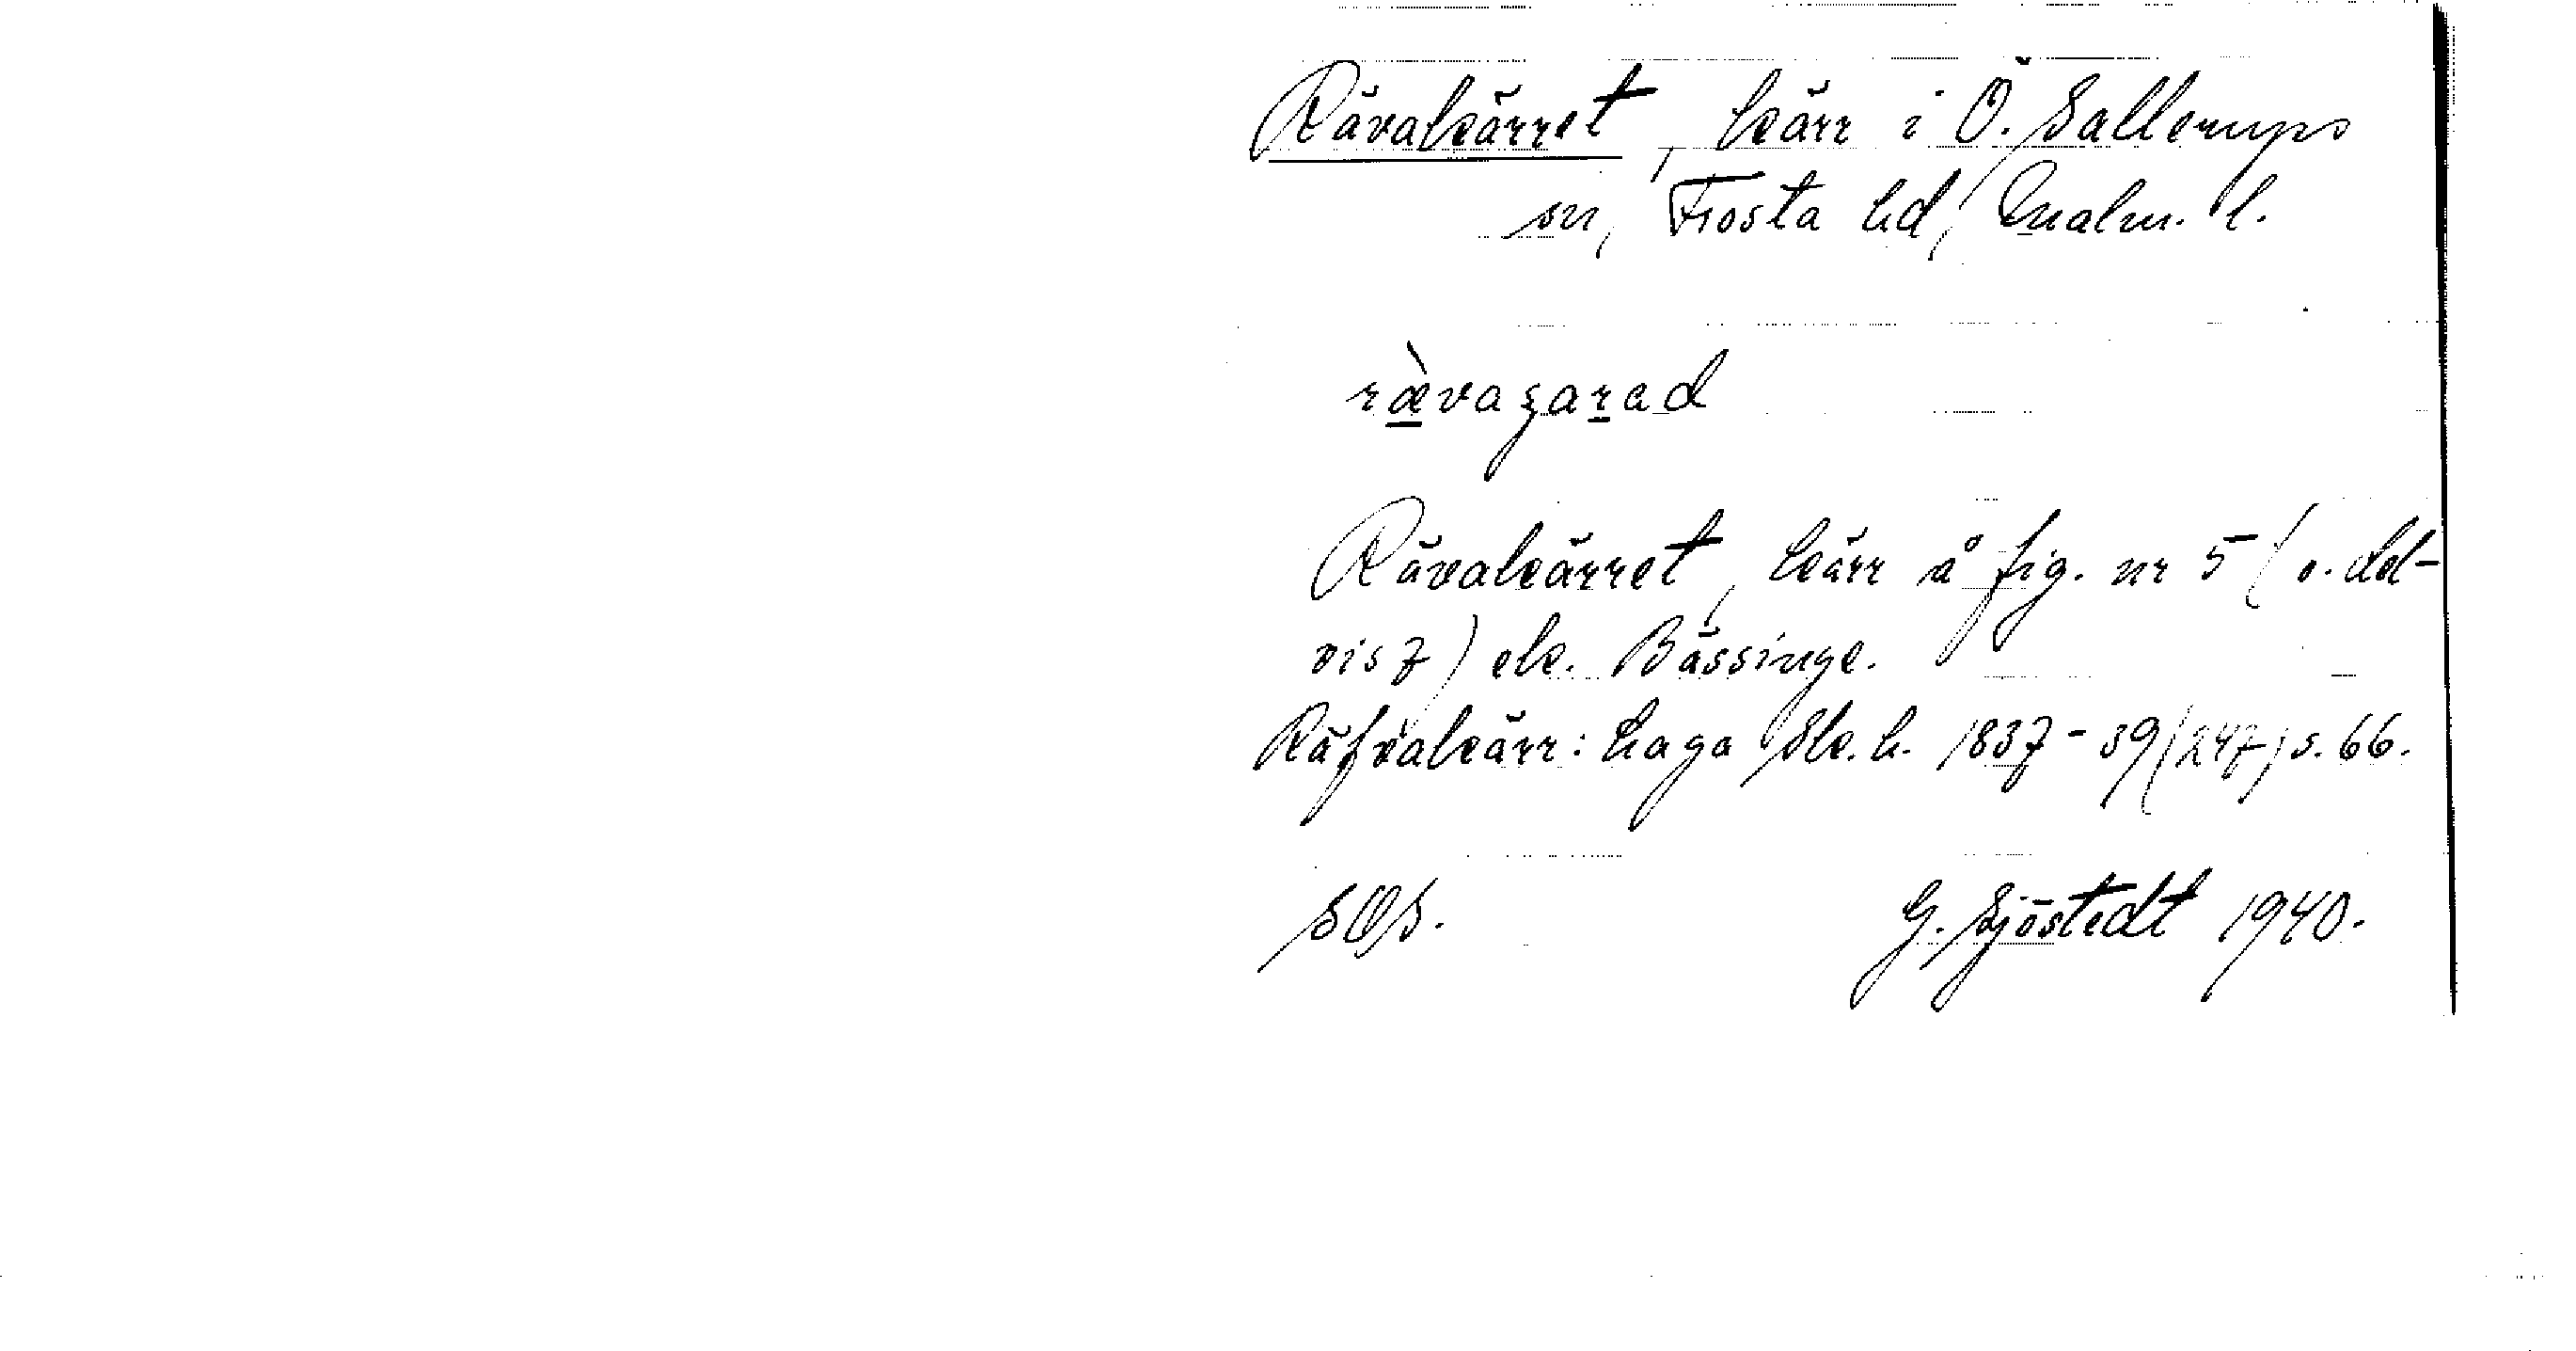 Rävakärret, kärr i Ö. Sallerups
sn, Frosta hd, Malm. l.
rævaʒarad
Rävakärret, kärr å fig. nr 5 (o. del-
vis 7) ek. Bässinge.
Räfvakärr: Laga Sk. h. 1837-39 (247) s. 66.
SOS.
G. Sjöstedt 1940.